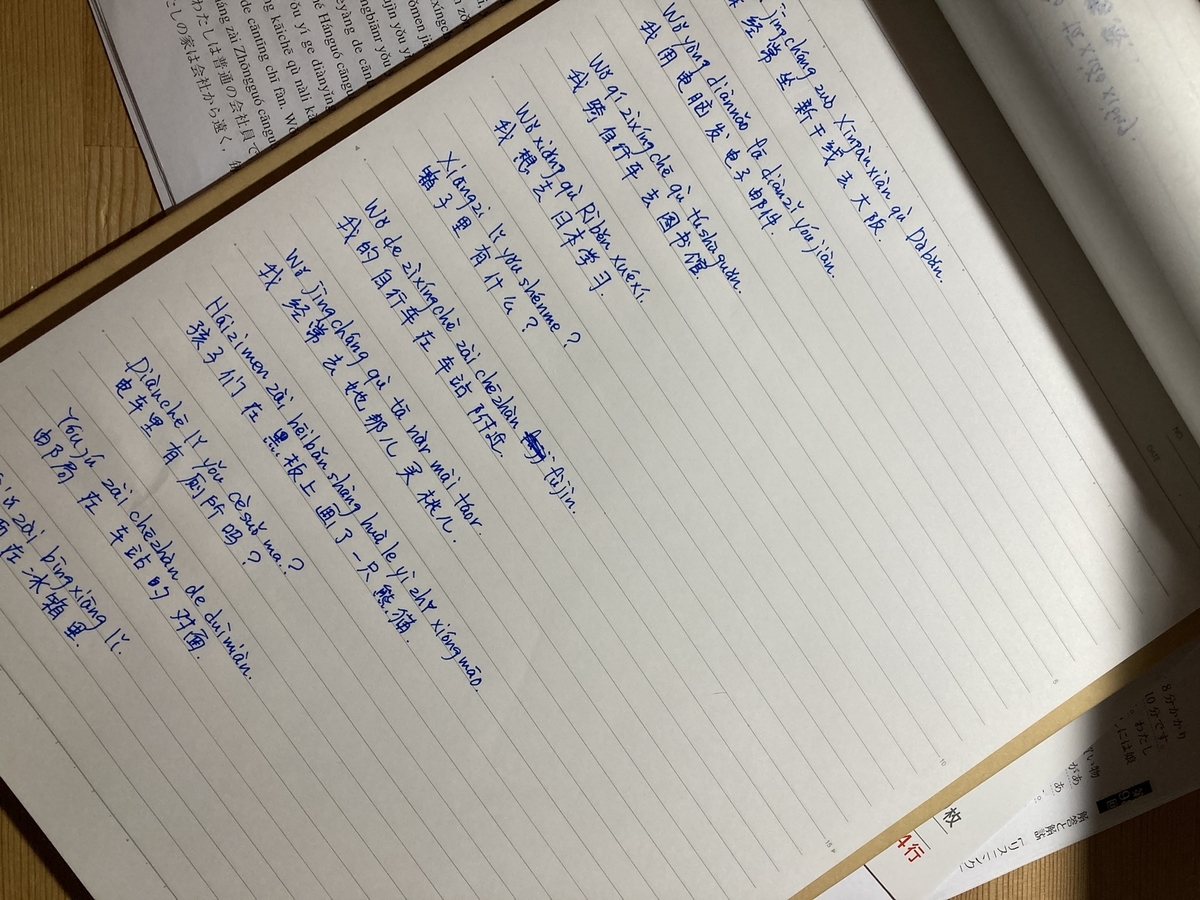 jīngcháng zuò Xīngànxiàn qù Dàbǎn.
经常坐新干线去大阪.
Wǒ yòng diànnǎo fā diànzǐ yóujiàn.
我用电脑发电子邮件.
Wǒ qí zìxíngchē qù túshūguǎn.
我骑自行车去图书馆.
Wǒ xiǎng qù Rìběn xuéxí.
我想去日本学习.
Xiāngzi lǐ yǒu shénme?
箱子里有什么?
Wǒ de zìxíngchē zài chēzhàn fùjìn.
我的自行车在车站附近.
Wǒ jīngcháng qù tā nàr mǎi táor.
我经常去她那儿买桃儿.
Háizimen zài hēibǎn shàng huà le yì zhī xióngmāo.
孩子们在黑板上画了一只熊猫.
Diànchē lǐ yǒu cèsuǒ ma?
电车里有厕所吗?
Yóujú zài chēzhàn de duìmiàn.
邮局在车站的对面.
zài bīngxiāng lǐ.
在冰箱里.
わたしは普通の会社員で
の家は会社から遠く、
zài Zhōngguó cāngu
de cāntīng chī fàn. Wǒ
kāichē qù nǎli
yǒu yí ge diànyǐng
Hánguó cāngu
NO.
DATE
8分かかり
10分です。
わたし
には娘
い物
があ
解答と解説
「リスニング」
枚
4行